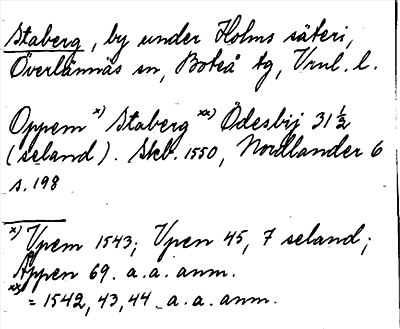 Staberg, by under Holms säteri,
Överlännäs sn, Boteå tg, Vrnl. l.
Oppem x) Staberg xx) Ödesbij 31 1/2
(seland). Skb. 1550, Nordlander 6
s. 198
x) Vpem 1543; Vpen 45, 7 seland;
Åppen 69. a. a. anm.
xx) = 1542, 43, 44. a. a. anm.